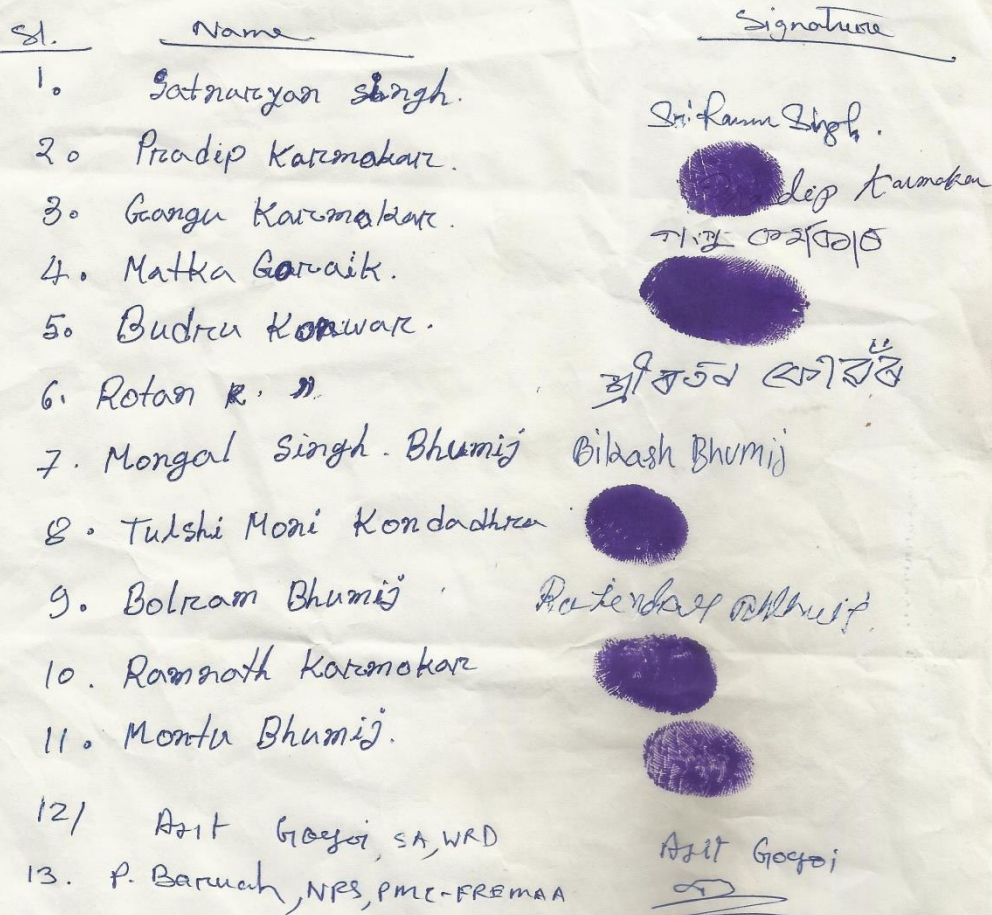 Sl. Name Signature
1. Satnarayan Singh. Sri Ram Singh.
2. Pradip Karmakar. dip Karmakar
3. Gangu Karmakar.
4. Matka Goraik.
5. Budru Konwar.
6. Rotan K. "
7. Mongal Singh. Bhumij Bikash Bhumij
8. Tulshi Moni Kondadhra
9. Bolram Bhumij
10. Ramnath Karmokar
11. Montu Bhumij.
12/ Asit Gogoi, SA, WRD Asit Gogoi
13. P. Baruah, NPS, PMC-FREMAA